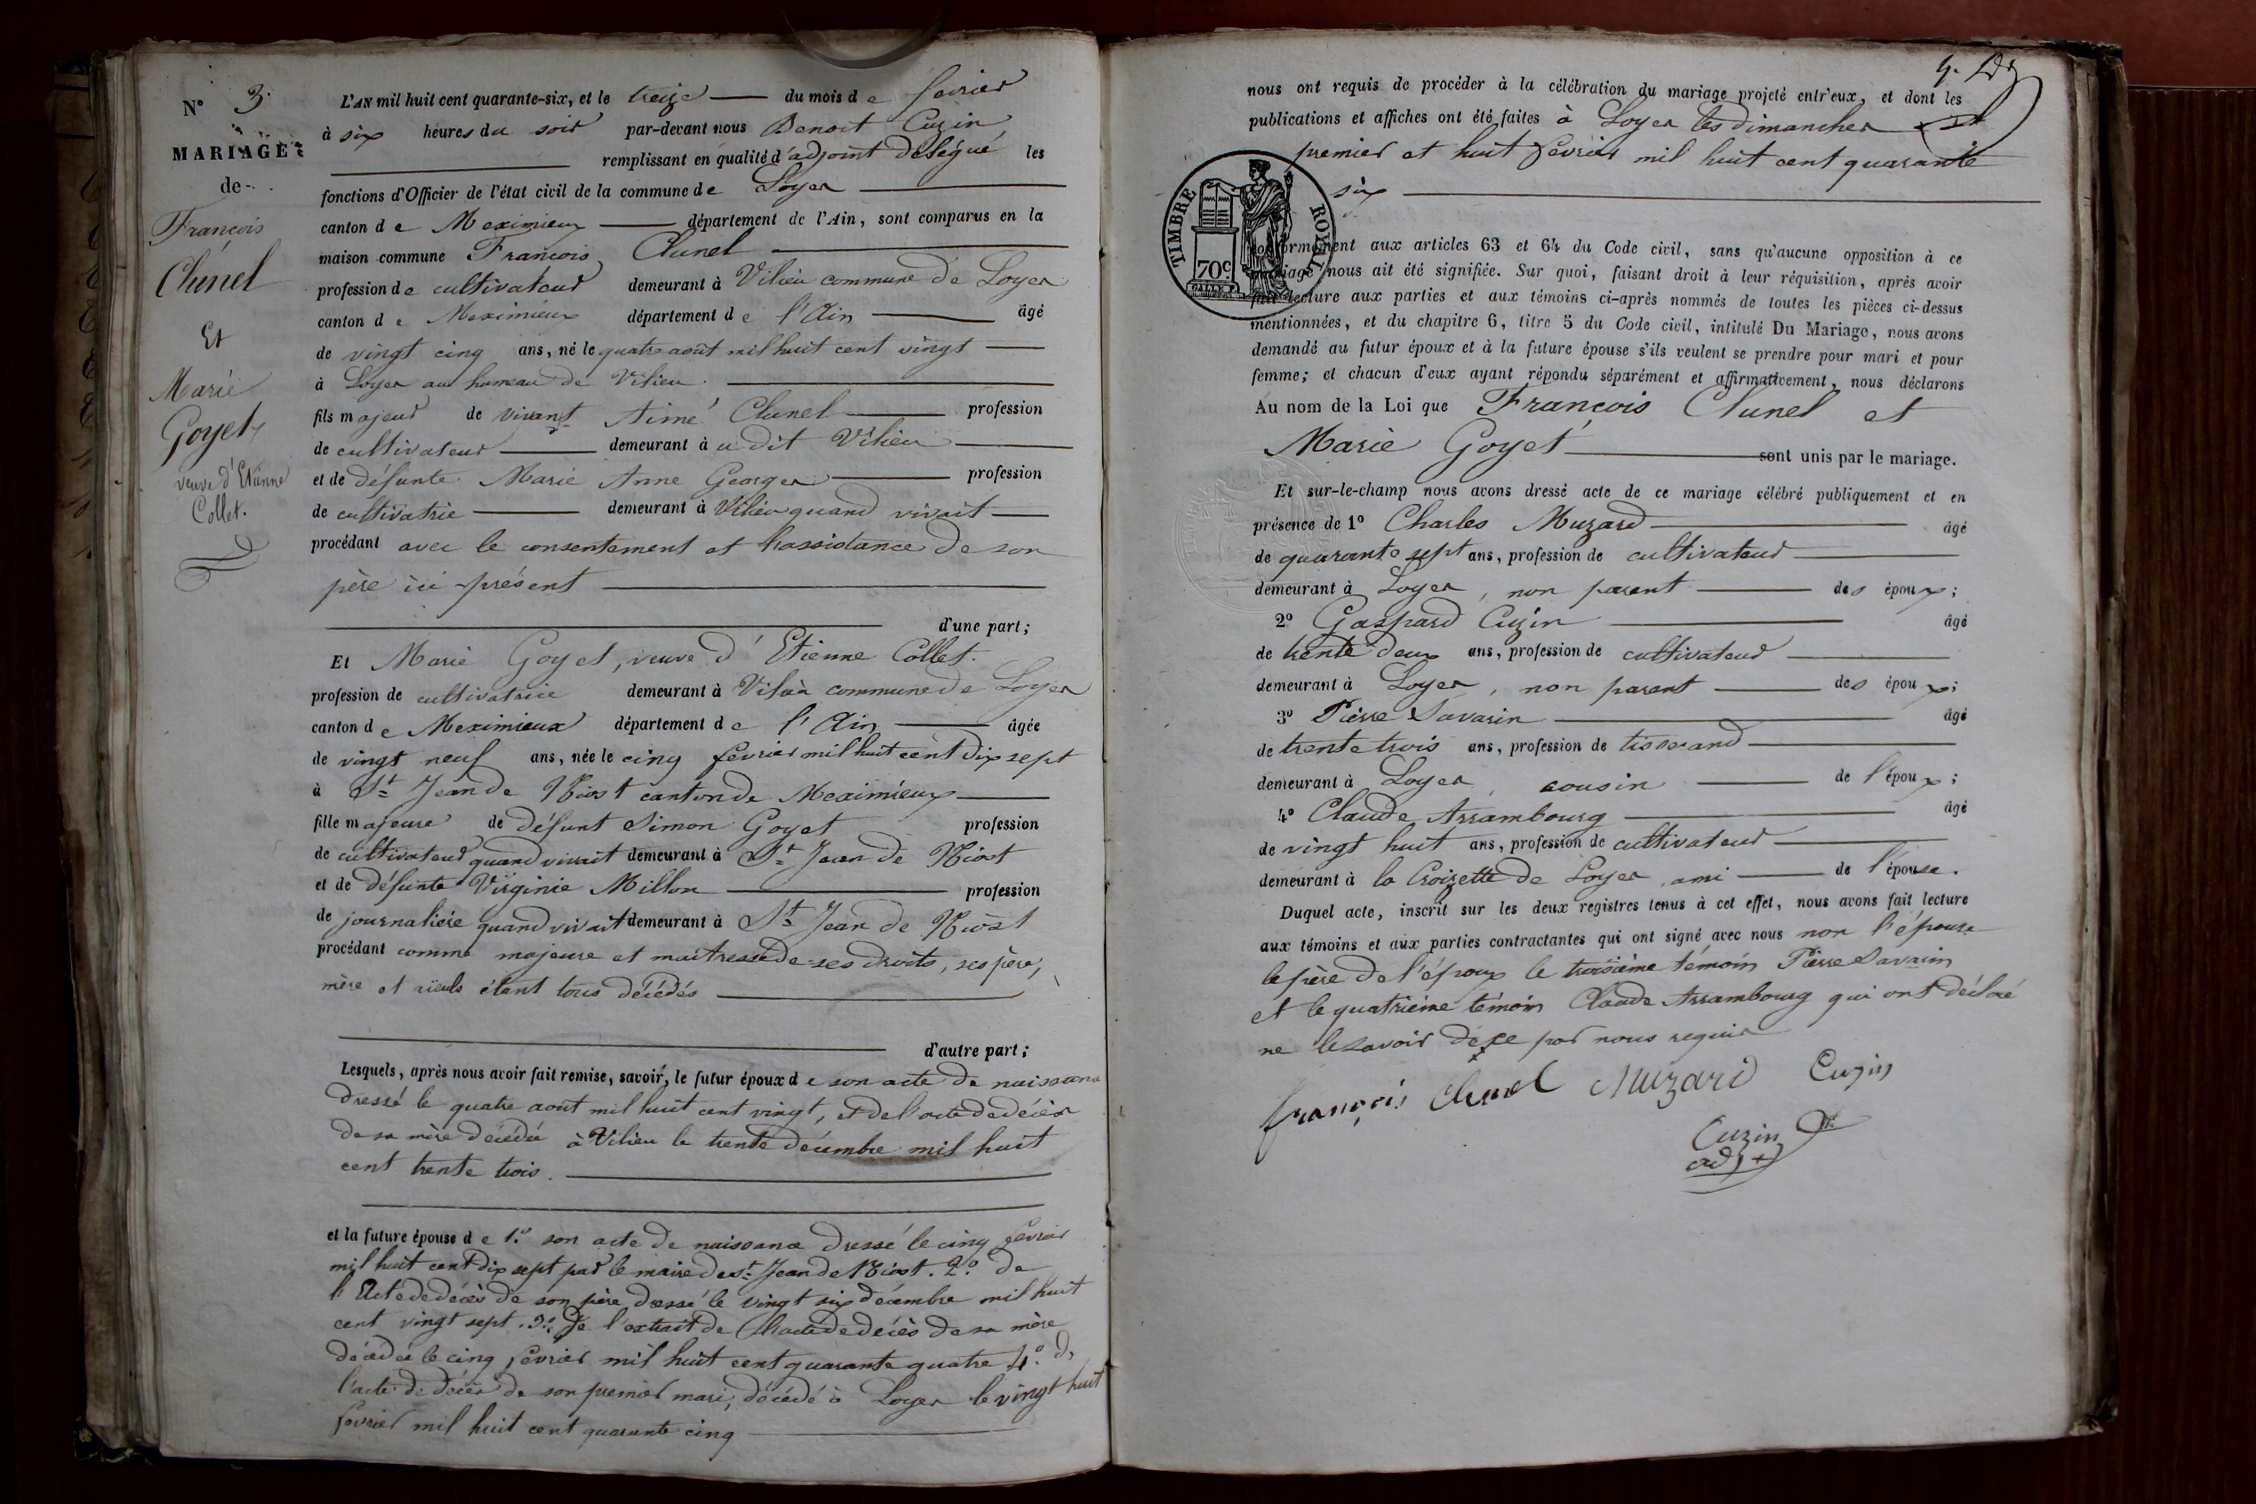 N° 3.
MARIAGE
de
François
Clunel
Et
Marie
Goyet,
veuve d'Etienne
Collet.
L'AN mil huit cent quarante-six, et le treize du mois de février
à six heures du soir par-devant nous Benoit Cuzin
remplissant en qualité d'adjoint délégué les
fonctions d'Officier de l'état civil de la commune de Loyes
canton de Meximieux département de l'Ain, sont comparus en la
maison commune François Clunel
profession de cultivateur demeurant à Vilieu commune de Loyes
canton de Meximieux département de l'Ain âgé
de vingt cinq ans, né le quatre août mil huit cent vingt
à Loyes au hameau de Vilieu.
fils majeur de vivant Aimé Clunel profession
de cultivateur demeurant à u dit Vilieu
et de défunte Marie Anne Georges profession
de cultivatrie demeurant à Vilieu quand vivait
procédant avec le consentement et l'assistance de son
père ici présent
d'une part;
Et Marie Goyet, veuve d'Etienne Collet.
profession de cultivatrice demeurant à Vilieu commune de Loyes
canton de Meximieux département de l'Ain âgée
de vingt neuf ans, née le cinq fevrier mil huit cent dix sept
à St Jean de Niost canton de Meximieux
fille majeure de défunt Simon Goyet profession
de cultivateur quand vivait demeurant à St Jean de Niost
et de défunte Virginie Millon profession
de journalière quand vivait demeurant à St Jean de Niost
procédant comme majeure et maitresse de ses droits, ses père,
mère et aïeuls étant tous décédés
d'autre part;
Lesquels, après nous avoir fait remise, savoir, le futur époux de son acte de naissance
dressé le quatre août mil huit cent vingt, et de l'acte de décès
de sa mère décédée à Vilieu le trente décembre mil huit
cent trente trois.
et la future épouse de 1.° son acte de naissance dressé le cinq fevrier
mil huit cent dix sept par le maire de St Jean de Niost. 2.° de
l'Acte de décès de son père dressé le vingt six décembre mil huit
cent vingt sept. 3.° de l'extrait de l'acte de décès de sa mère
décédée le cinq fevrier mil huit cent quarante quatre 4.° de
l'acte de décès de son premier mari, décédé à Loyes le vingt huit
fevrier mil huit cent quarante cinq
nous ont requis de procéder à la célébration du mariage projeté entr'eux, et dont les
publications et affiches ont été faites à Loyes les dimanches
premier et huit fevrier mil huit cent quarante
six
TIMBRE ROYAL
70c.
conformément aux articles 63 et 64 du Code civil, sans qu'aucune opposition à ce
mariage nous ait été signifiée. Sur quoi, faisant droit à leur réquisition, après avoir
fait lecture aux parties et aux témoins ci-après nommés de toutes les pièces ci-dessus
mentionnées, et du chapitre 6, titre 5 du Code civil, intitulé Du Mariage, nous avons
demandé au futur époux et à la future épouse s'ils veulent se prendre pour mari et pour
femme; et chacun d'eux ayant répondu séparément et affirmativement, nous déclarons
Au nom de la Loi que François Clunel et
Marie Goyet sont unis par le mariage.
Et sur-le-champ nous avons dressé acte de ce mariage célébré publiquement et en
présence de 1° Charles Muzard âgé
de quarante sept ans, profession de cultivateur
demeurant à Loyes, non parent des époux;
2° Gaspard Cuzin âgé
de trente deux ans, profession de cultivateur
demeurant à Loyes, non parent des époux;
3° Pierre Savarin âgé
de trente trois ans, profession de tisserand
demeurant à Loyes, cousin de l'époux;
4° Claude Arrambourg âgé
de vingt huit ans, profession de cultivateur
demeurant à la Croizette de Loyes, ami de l'épouse.
Duquel acte, inscrit sur les deux registres tenus à cet effet, nous avons fait lecture
aux témoins et aux parties contractantes qui ont signé avec nous non l'épouse
le père de l'époux le troisième témoin Pierre Savarin
et le quatrième témoin Claude Arrambourg qui ont déclaré
ne le savoir de ce par nous requis
françois Clunel Muzard Cuzin
Cuzin
adjt